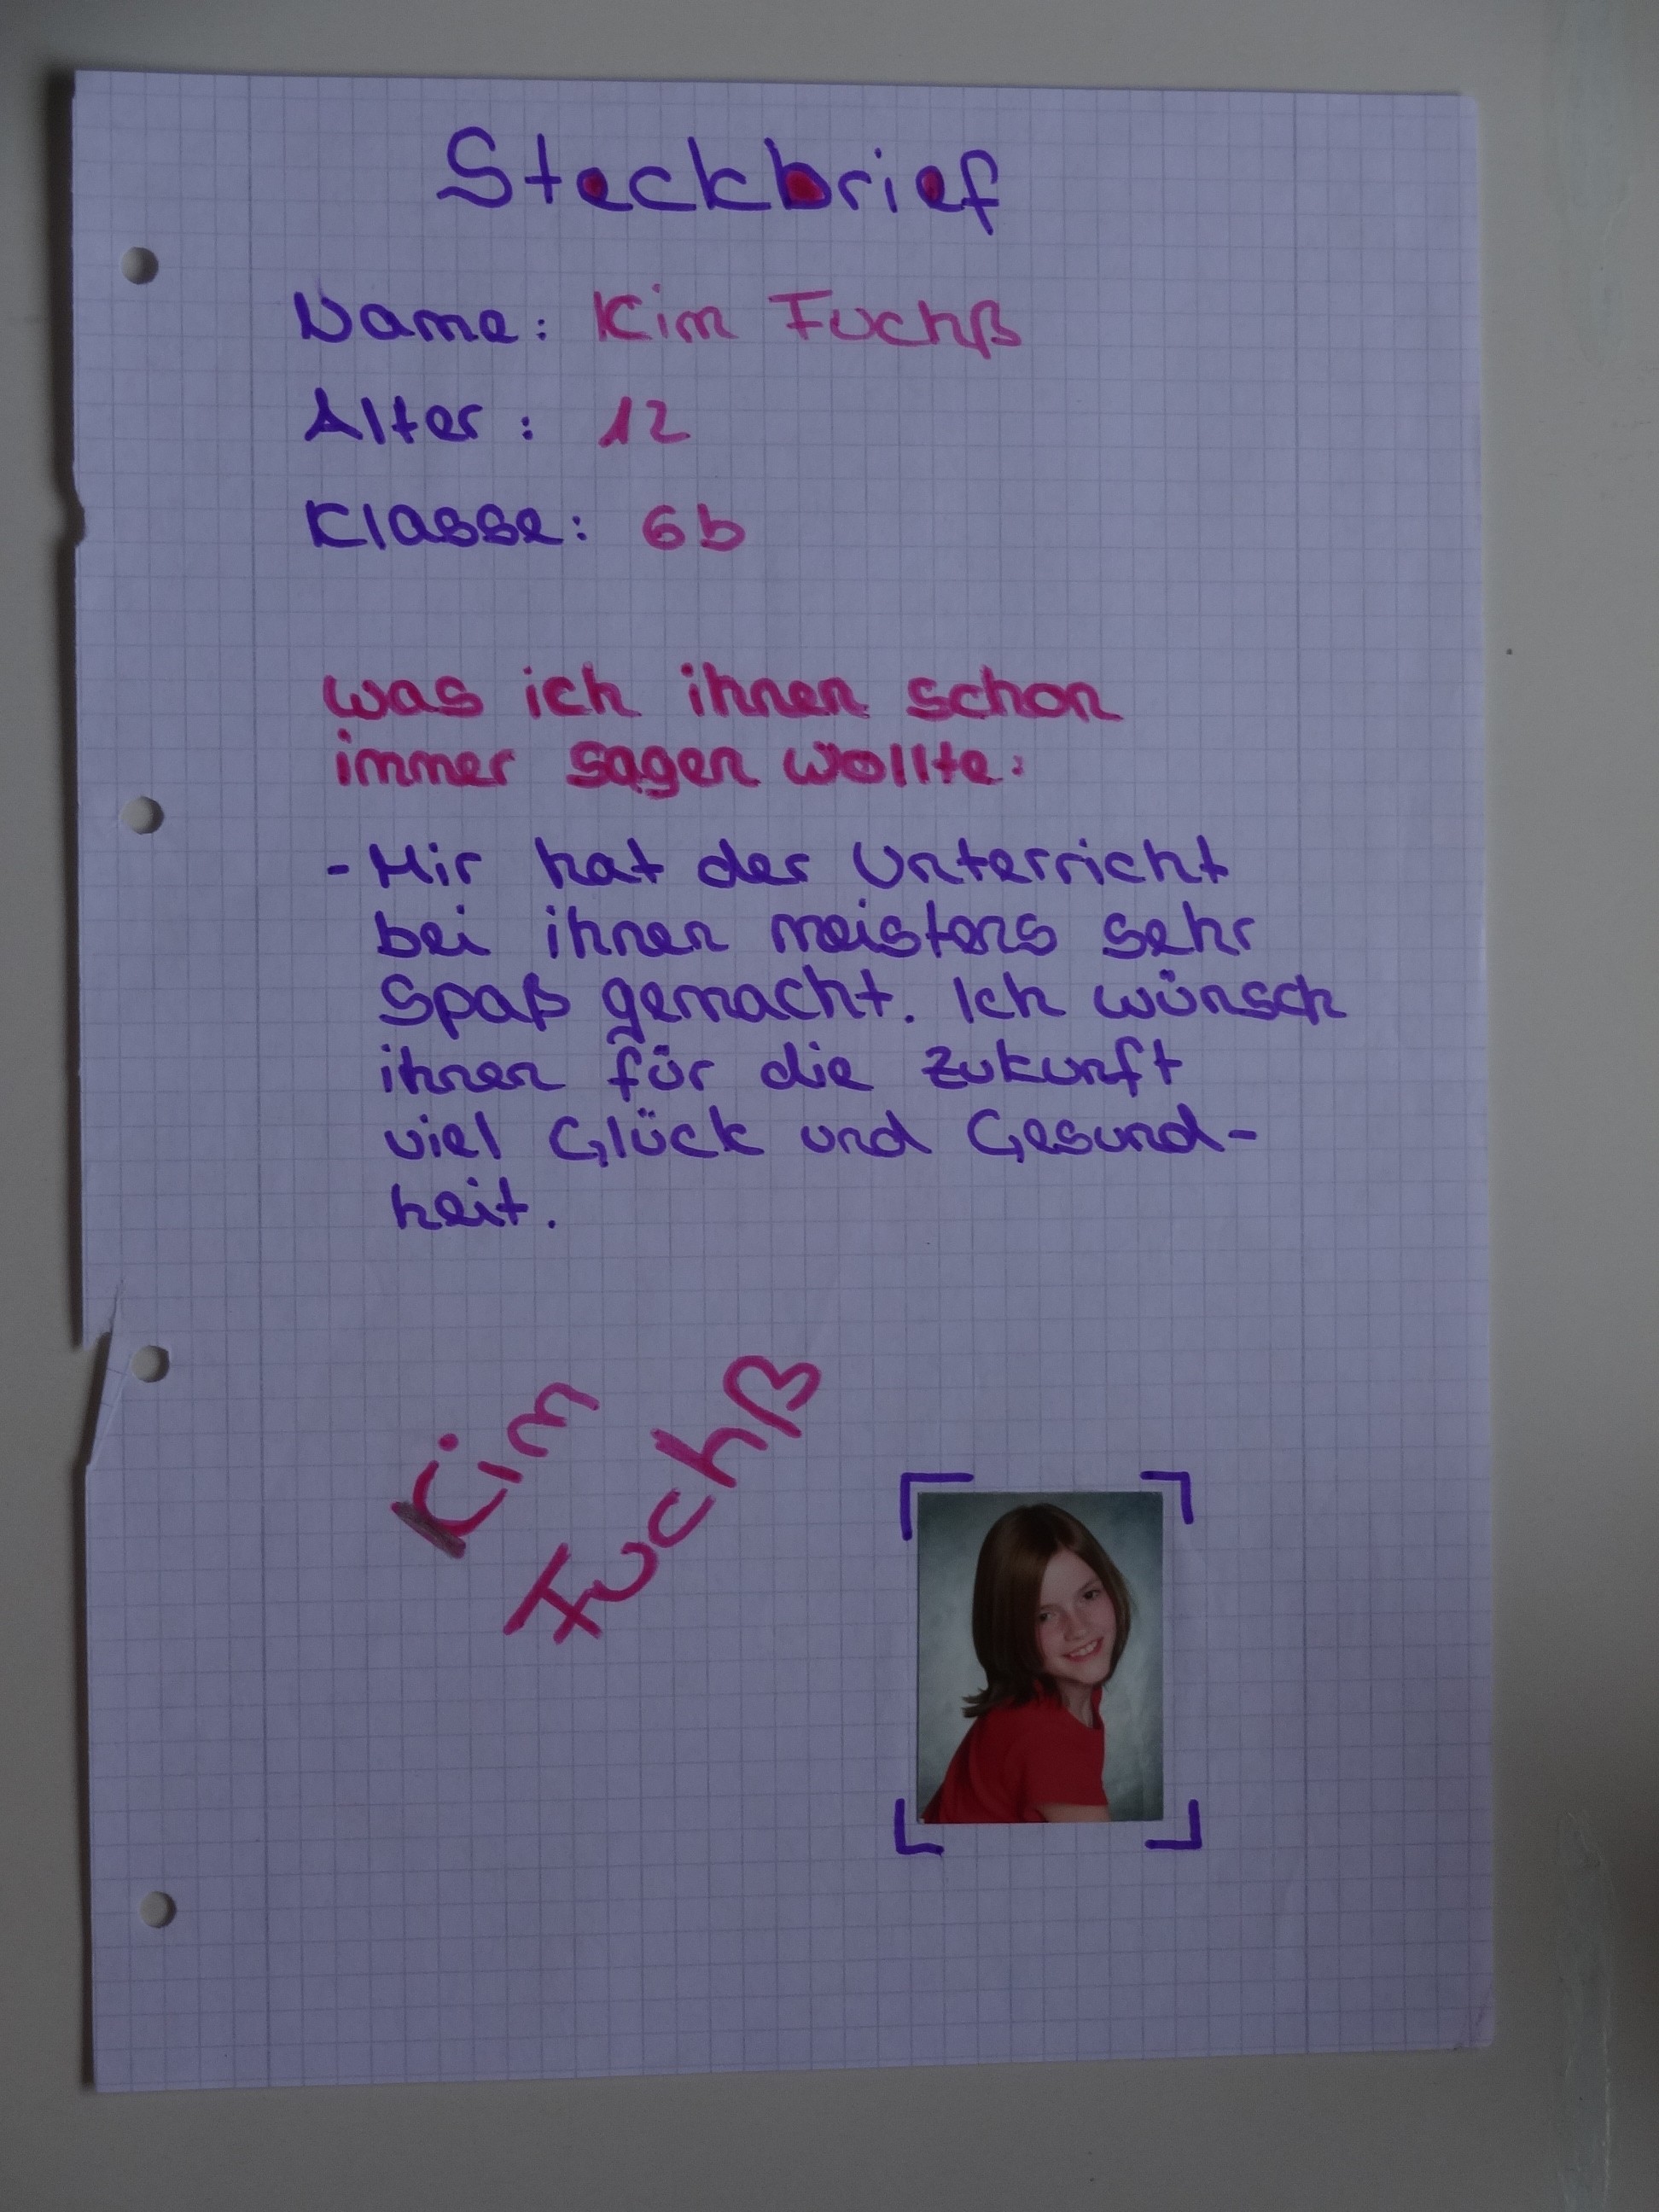 Steckbrief
Name: Kim Fuchß
Alter: 12
Klasse: 6b
was ich ihnen schon
immer sagen wollte:
- Mir hat der Unterricht
bei ihnen meistens sehr
Spaß gemacht. Ich wünsch
ihnen für die Zukunft
viel Glück und Gesund-
heit.
Kim
Fuchß